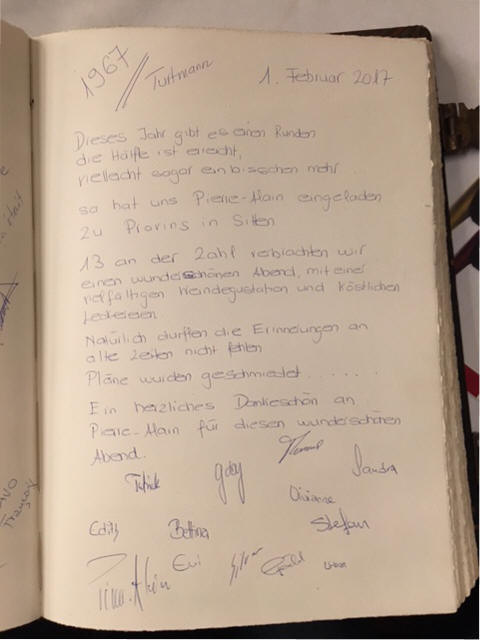 1967
// Turtmann
1. Februar 2017
Dieses Jahr gibt es einen Runden
die Hälfte ist erreicht,
vielleicht sogar ein bisschen mehr.
so hat uns Pierre-Alain eingeladen
zu Provins in Sitten
13 an der Zahl verbrachten wir
einen wunderschönen Abend, mit einer
vielfältigen Weindegustation und köstlichen
Leckereien.
Natürlich durften die Erinnerungen an
alte Zeiten nicht fehlen
Pläne wurden geschmiedet ......
Ein herzliches Dankeschön an
Pierre-Alain für diesen wunderschönen
Abend.
Sandra
Gaby
Vivianne
Stefan
Edith
Bettina
Evi